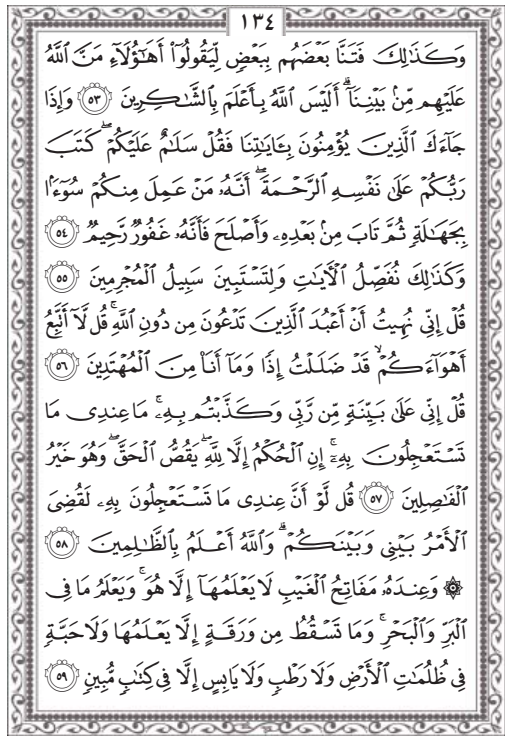 ١٣٤
وَكَذَٰلِكَ فَتَنَّا بَعْضَهُم بِبَعْضٍ لِّيَقُولُوٓا۟ أَهَٰٓؤُلَآءِ مَنَّ ٱللَّهُ
عَلَيْهِم مِّنۢ بَيْنِنَآ ۗ أَلَيْسَ ٱللَّهُ بِأَعْلَمَ بِٱلشَّٰكِرِينَ ٥٣ وَإِذَا
جَآءَكَ ٱلَّذِينَ يُؤْمِنُونَ بِـَٔايَٰتِنَا فَقُلْ سَلَٰمٌ عَلَيْكُمْ ۖ كَتَبَ
رَبُّكُمْ عَلَىٰ نَفْسِهِ ٱلرَّحْمَةَ ۖ أَنَّهُۥ مَنْ عَمِلَ مِنكُمْ سُوٓءًۢا
بِجَهَٰلَةٍ ثُمَّ تَابَ مِنۢ بَعْدِهِۦ وَأَصْلَحَ فَأَنَّهُۥ غَفُورٌ رَّحِيمٌ ٥٤
وَكَذَٰلِكَ نُفَصِّلُ ٱلْـَٔايَٰتِ وَلِتَسْتَبِينَ سَبِيلُ ٱلْمُجْرِمِينَ ٥٥
قُلْ إِنِّى نُهِيتُ أَنْ أَعْبُدَ ٱلَّذِينَ تَدْعُونَ مِن دُونِ ٱللَّهِ ۚ قُل لَّآ أَتَّبِعُ
أَهْوَآءَكُمْ ۙ قَدْ ضَلَلْتُ إِذًا وَمَآ أَنَا۠ مِنَ ٱلْمُهْتَدِينَ ٥٦
قُلْ إِنِّى عَلَىٰ بَيِّنَةٍ مِّن رَّبِّى وَكَذَّبْتُم بِهِۦ ۚ مَا عِندِى مَا
تَسْتَعْجِلُونَ بِهِۦٓ ۚ إِنِ ٱلْحُكْمُ إِلَّا لِلَّهِ ۖ يَقُصُّ ٱلْحَقَّ ۖ وَهُوَ خَيْرُ
ٱلْفَٰصِلِينَ ٥٧ قُل لَّوْ أَنَّ عِندِى مَا تَسْتَعْجِلُونَ بِهِۦ لَقُضِىَ
ٱلْأَمْرُ بَيْنِى وَبَيْنَكُمْ ۗ وَٱللَّهُ أَعْلَمُ بِٱلظَّٰلِمِينَ ٥٨
۞ وَعِندَهُۥ مَفَاتِحُ ٱلْغَيْبِ لَا يَعْلَمُهَآ إِلَّا هُوَ ۚ وَيَعْلَمُ مَا فِى
ٱلْبَرِّ وَٱلْبَحْرِ ۚ وَمَا تَسْقُطُ مِن وَرَقَةٍ إِلَّا يَعْلَمُهَا وَلَا حَبَّةٍ
فِى ظُلُمَٰتِ ٱلْأَرْضِ وَلَا رَطْبٍ وَلَا يَابِسٍ إِلَّا فِى كِتَٰبٍ مُّبِينٍ ٥٩